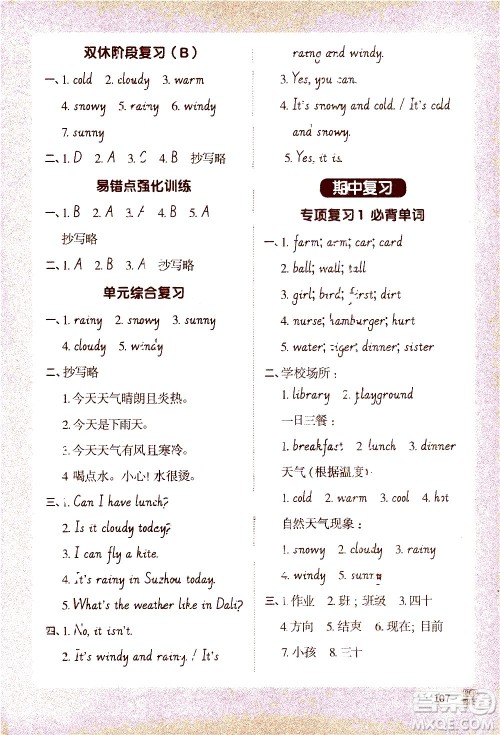 双休阶段复习（B）
一、1. cold 2. cloudy 3. warm
4. snowy 5. rainy 6. windy
7. sunny
二、1. D 2. A 3. C 4. B 抄写略
易错点强化训练
一、1. B 2. A 3. A 4. B 5. A
抄写略
二、1. A 2. A 抄写略
单元综合复习
一、1. rainy 2. snowy 3. sunny
4. cloudy 5. windy
二、抄写略
1. 今天天气晴朗且炎热。
2. 今天是下雨天。
3. 今天天气有风且寒冷。
4. 喝点水。小心！水很烫。
三、1. Can I have lunch?
2. Is it cloudy today?
3. I can fly a kite.
4. It's rainy in Suzhou today.
5. What's the weather like in Dali?
四、1. No, it isn't.
2. It's windy and rainy. / It's
raing and windy.
3. Yes, you can.
4. It's snowy and cold. / It's cold
and snowy.
5. Yes, it is.
期中复习
专项复习1 必背单词
一、1. farm; arm; car; card
2. ball; wall; tall; small
3. girl; bird; first; dirt
4. nurse; hamburger; hurt
5. water; tiger; dinner; sister
二、学校场所：
1. library 2. playground
一日三餐：
1. breakfast 2. lunch 3. dinner
天气（根据温度）
1. cold 2. warm 3. cool 4. hot
自然天气现象：
1. snowy 2. windy 3. cloudy
4. rainy 5. sunny
三、1. 作业 2. 班；班级 3. 四十
4. 方向 5. 结束 6. 现在；目前
7. 小孩 8. 三十
107
答案圈
MXQE.COM